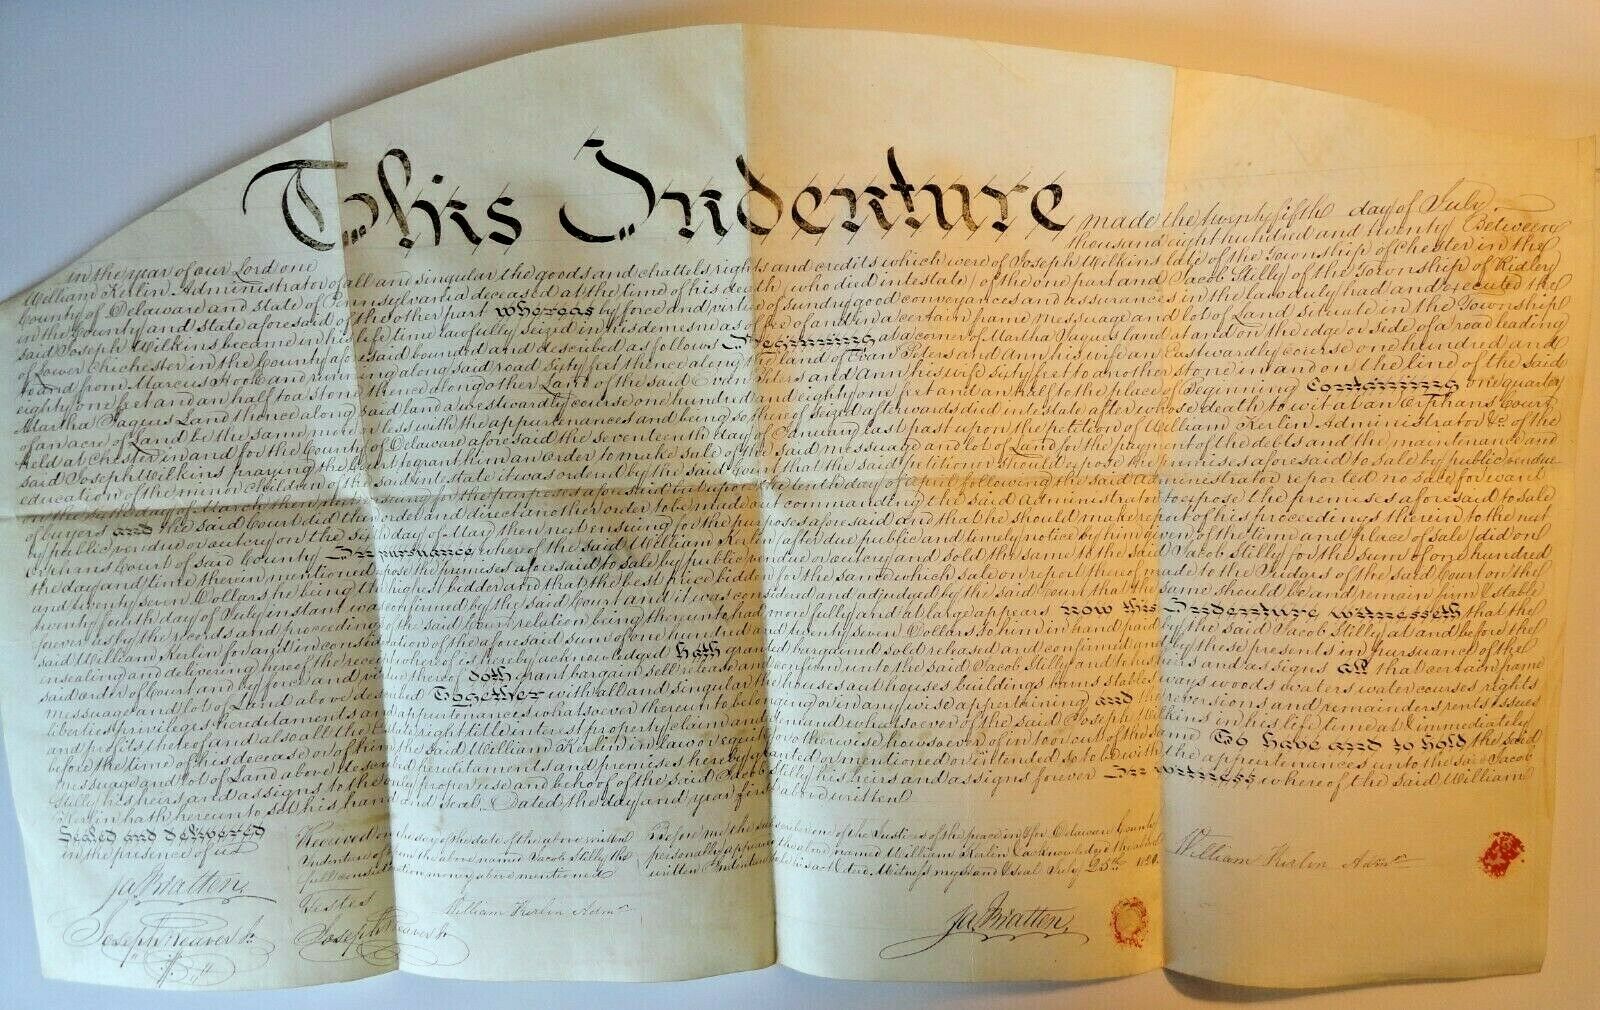 This Indenture made the twenty fifth day of July
in the year of our Lord one thousand eight hundred and twenty Between
William Kerlin Administrator of all and singular the goods and chattels rights and credits which were of Joseph Wilkins late of the Township of Chester in the
County of Delaware and state of Pennsylvania deceased at the time of his death (who died intestate) of the one part and Jacob Stilly of the Township of Ridley
in the County and state aforesaid of the other part whereas by force and virtue of sundry good conveyances and assurances in the law duly had and executed the
said Joseph Wilkins became in his life time lawfully seized in his demesne as of fee of and in a certain frame messuage and lot of Land situate in the Township
of Lower Chichester in the County aforesaid bounded and described as follows Beginning at a corner of Martha Pagues land at and on the edge or side of a road leading
to and from Marcus Hook and running along said road sixty feet thence along the land of Evan Peters and Ann his wife an Eastwardly course one hundred and
eighty one feet and an half to a stone thence along other Land of the said Evan Peters and Ann his wife sixty feet to another stone in and on the line of the said
Martha Pagues Land thence along said land a westwardly course one hundred and eighty one feet and an half to the place of Beginning Containing one quarter
of an acre of Land be the same more or less with the appurtenances and being so thereof seized afterwards died intestate after whose death to wit at an Orphans Court
held at Chester in and for the County of Delaware aforesaid the seventeenth day of January last past upon the petition of William Kerlin Administrator &c. of the
said Joseph Wilkins praying the Court to grant him an Order to make sale of the said messuage and lot of Land for the payment of the debts and the maintenance and
education of the minor children of the said intestate it was ordered by the said Court that the said petitioner should expose the premises aforesaid to sale by public vendue
on the day of March then next ensuing for the purposes aforesaid but upon the tenth day of April following the said Administrator reported no sale for want
of buyers and the said Court did then order and direct another order to be made out commanding the said Administrator to expose the premises aforesaid to sale
by public vendue or outcry on the day of May then next ensuing for the purposes aforesaid and that he should make report of his proceedings therein to the next
Orphans Court of said County In pursuance whereof the said William Kerlin (after due public and timely notice by him given of the time and place of sale) did on
the day and time therein mentioned expose the premises aforesaid to sale by public vendue or outcry and sold the same to the said Jacob Stilly for the sum of one hundred
and twenty seven Dollars he being the highest bidder and that the best price bidden for the same which sale on report thereof made to the Judges of the said Court on the
twenty fourth day of July instant was confirmed by the said Court and it was considered and adjudged by the said Court that the same should be and remain firm & stable
forever as by the records and proceedings of the said Court relation being thereunto had more fully and at large appears now this Indenture witnesseth that the
said William Kerlin for and in consideration of the aforesaid sum of one hundred and twenty seven Dollars to him in hand paid by the said Jacob Stilly at and before the
sealing and delivering hereof the receipt whereof is hereby acknowledged hath granted bargained sold released and confirmed and by these presents in pursuance of the
said order of Court and by force and virtue thereof doth grant bargain sell release and confirm unto the said Jacob Stilly and to his heirs and assigns all that certain frame
messuage and lot of Land above described Together with all and singular the houses outhouses buildings barns stables ways woods waters water courses rights
liberties privileges hereditaments and appurtenances whatsoever thereunto belonging or in any wise appertaining and the reversions and remainders rents issues
and profits thereof and also all the Estate right title interest property claim and demand whatsoever of the said Joseph Wilkins in his life time at & immediately
before the time of his decease or of him the said William Kerlin in law or equity or otherwise howsoever of in to or out of the same To have and to hold the said
messuage and lot of Land above described hereditaments and premises hereby granted or mentioned or intended so to be with the appurtenances unto the said Jacob
Stilly his heirs and assigns to the only proper use and behoof of the said Jacob Stilly his heirs and assigns forever In witness whereof the said William
Kerlin hath hereunto set his hand and seal. Dated the day and year first above written
Sealed and delivered
in the presence of us
Ja. Bratten
Joseph Weaver Jr.
Received on the day of the date of the above written
Indenture of the above named Jacob Stilly the
full consideration money above mentioned
Testes
Joseph Weaver Jr
William Kerlin Admr.
Before me the subscriber one of the Justices of the peace in & for Delaware County
personally appeared the above named William Kerlin & acknowledged the above
written Indenture to be his act & deed Witness my hand & seal July 25th 1820.
Ja. Bratten
William Kerlin Admr.